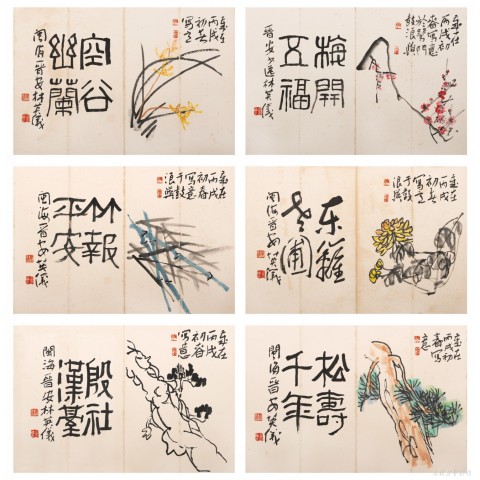 歲在
丙戌
初春
寫意
空谷
幽蘭
晉安林英儀
歲在
丙戌
春寫意
鼓浪嶼
梅開
五福
晉安
林英儀
歲在
丙戌
初春
寫意
于鼓
浪嶼
竹報
平安
閩海晉安英儀
歲在
丙戌
初春
寫
于鼓
浪嶼
東籬
老圃
閩海晉安英儀
歲在
丙戌
初春
寫意
殷社
漢
閩海晉安林英儀
歲在
丙戌初
春寫
意
松壽
千年
閩海晉安英儀